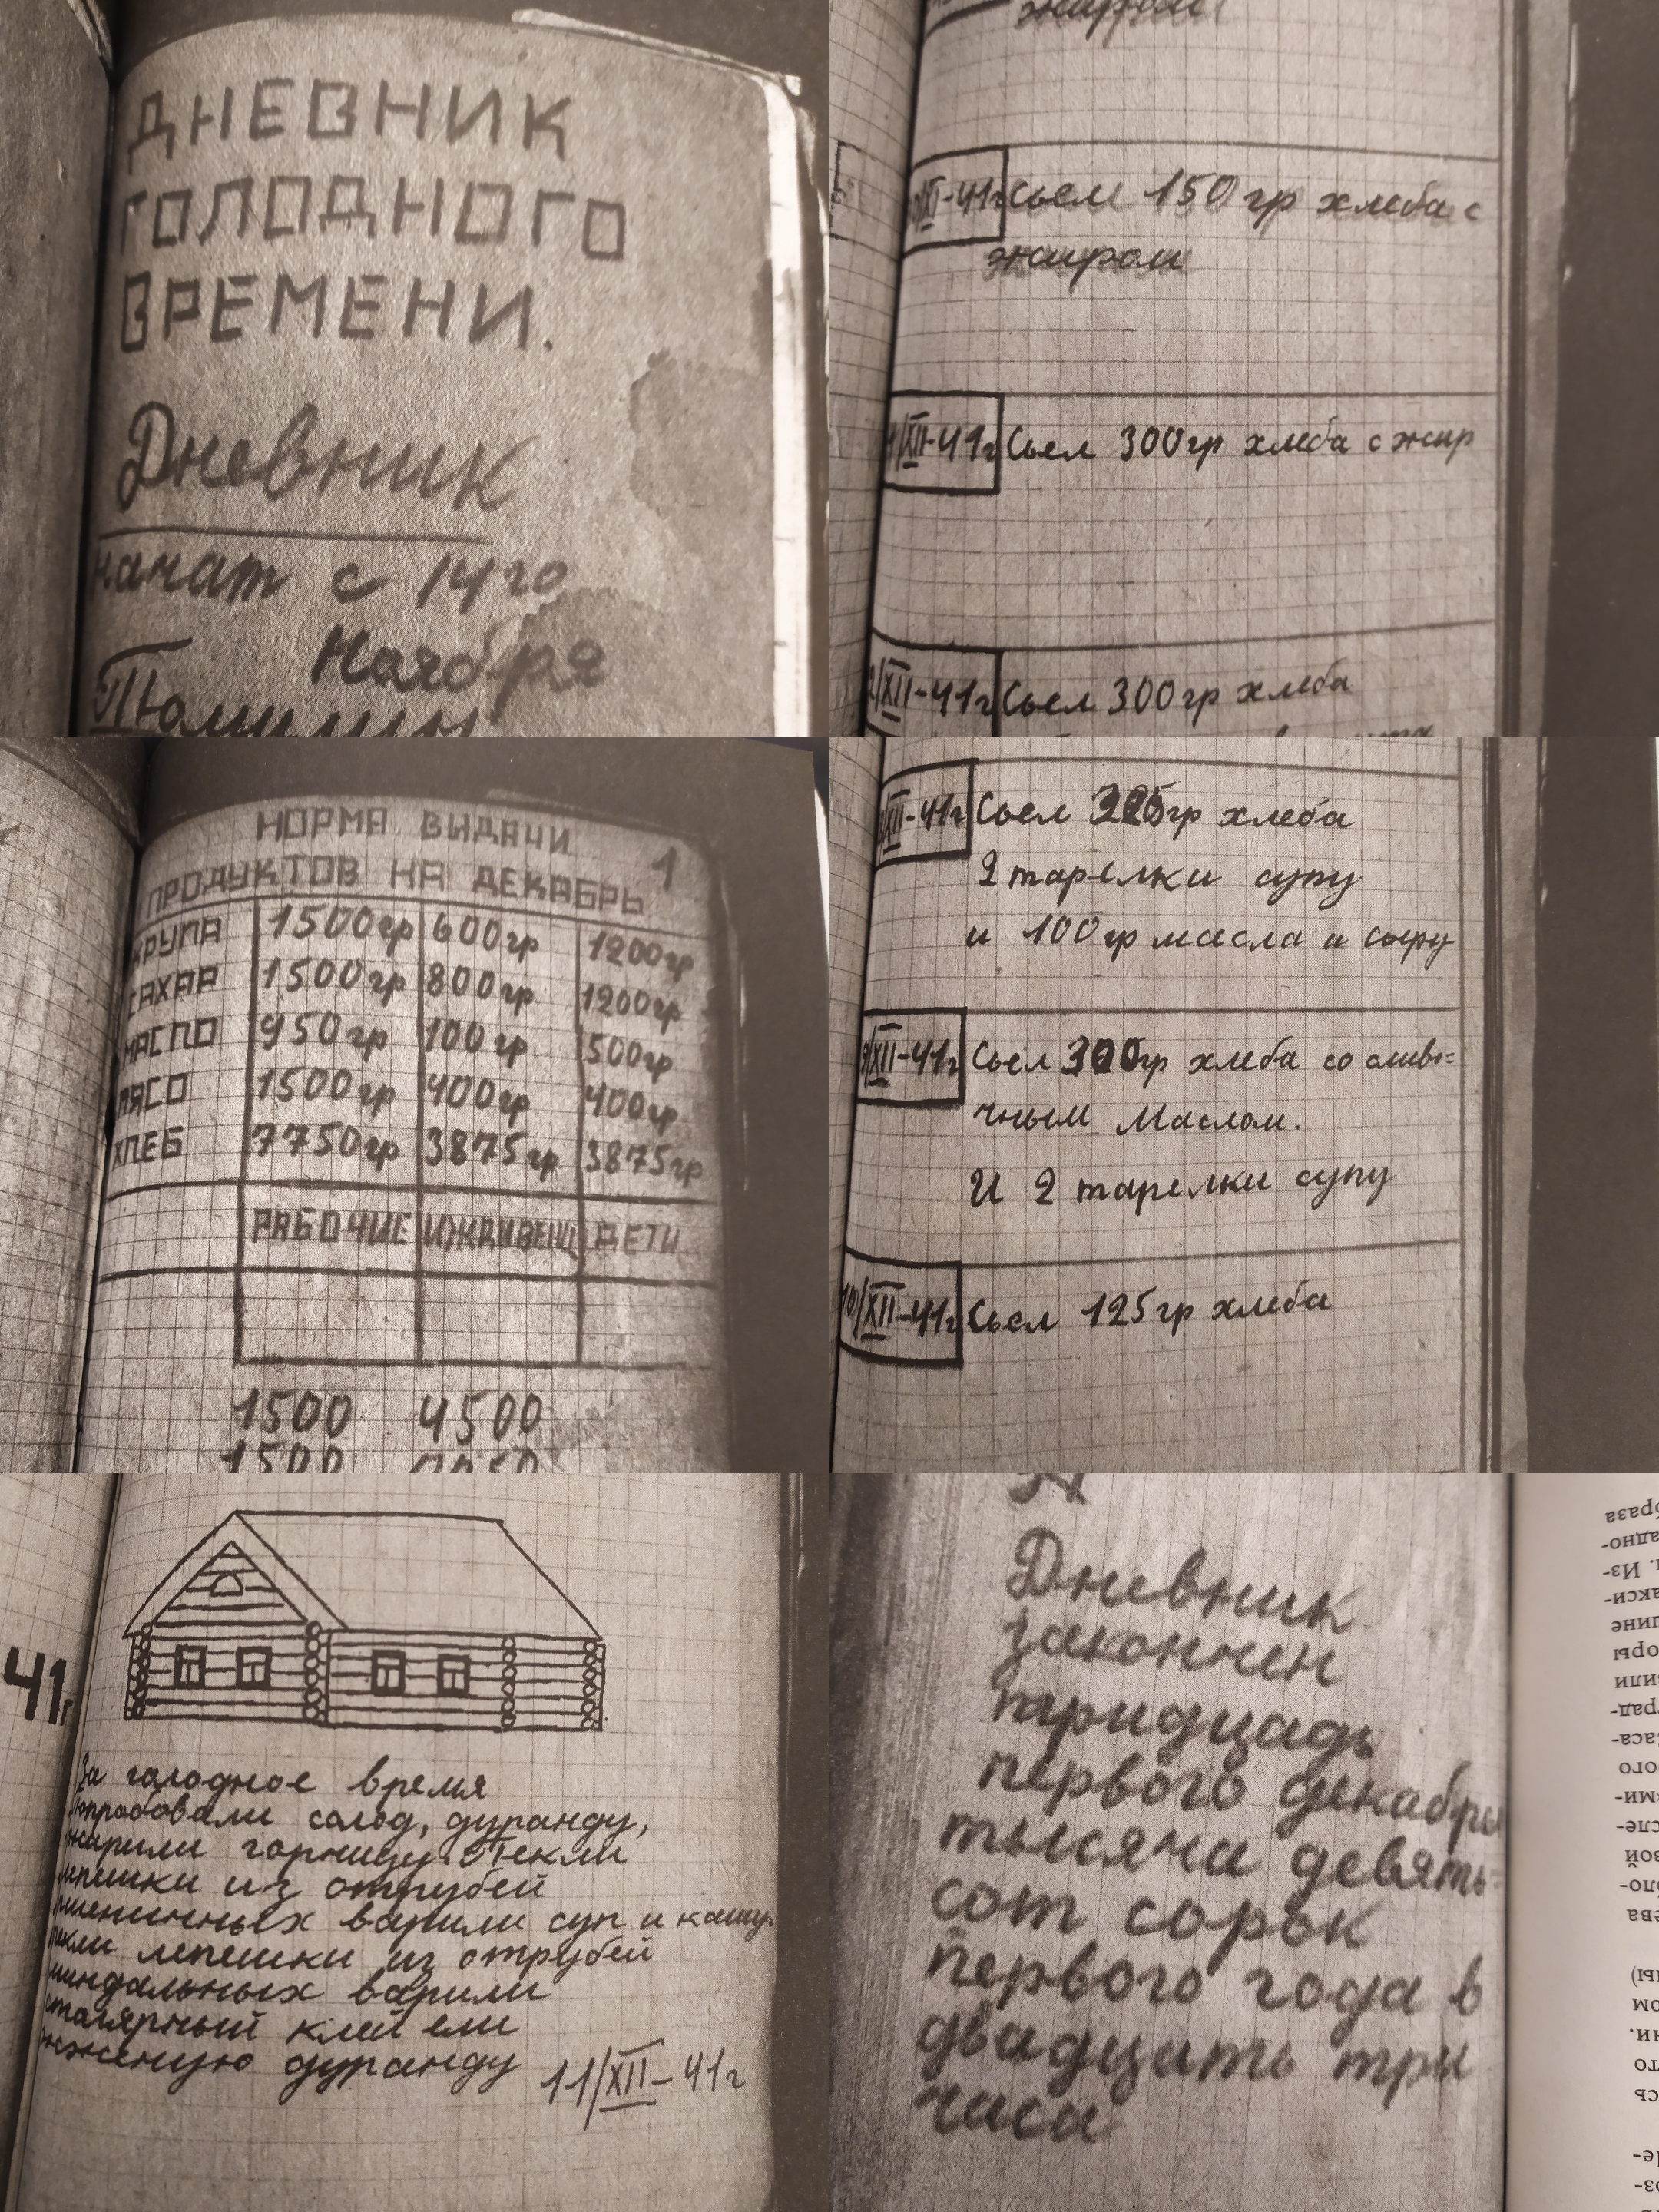 ДНЕВНИК
ГОЛОДНОГО
ВРЕМЕНИ.
Дневник
начат с 14го
Ноября
жиром
XI-41г Сьел 150 гр хлеба с
жиром
1/XII-41г Сьел 300 гр хлеба с жир
2/XII-41г Сьел 300 гр хлеба
НОРМА ВЫДАЧИ
ПРОДУКТОВ НА ДЕКАБРЬ 1
КРУПА 1500гр 600гр 1200гр
САХАР 1500гр 800гр 1200гр
МАСЛО 950гр 100гр 500гр
МЯСО 1500гр 400гр 400гр
ХЛЕБ 7750гр 3875гр 3875гр
РАБОЧИЕ ИЖДИВЕНЦ ДЕТИ
1500 4500
1500
XII-41г Сьел 325гр хлеба
2 тарелки супу
и 100 гр масла и сыру
9/XII-41г Сьел 300гр хлеба со сливо=
чным Маслом.
И 2 тарелки супу
10/XII-41г Сьел 125 гр хлеба
41г
За голодное время
попробовали солод, дуранду,
жарили горчицу. Пекли
лепешки из отрубей
пшеничных варили суп и кашу.
пекли лепешки из отрубей
миндальных варили
столярный клей ели
жженую дуранду 11/XII-41г
Дневник
закончен
тридцадь
первого декабря
тысяча девять=
сот сорок
первого года в
двадцать три
часа
браза
адно-
. Из-
акси-
оры
вили
град-
аса-
ого
ми-
сле-
вой
оло-
ева
ны)
ом
ни.
то
сь